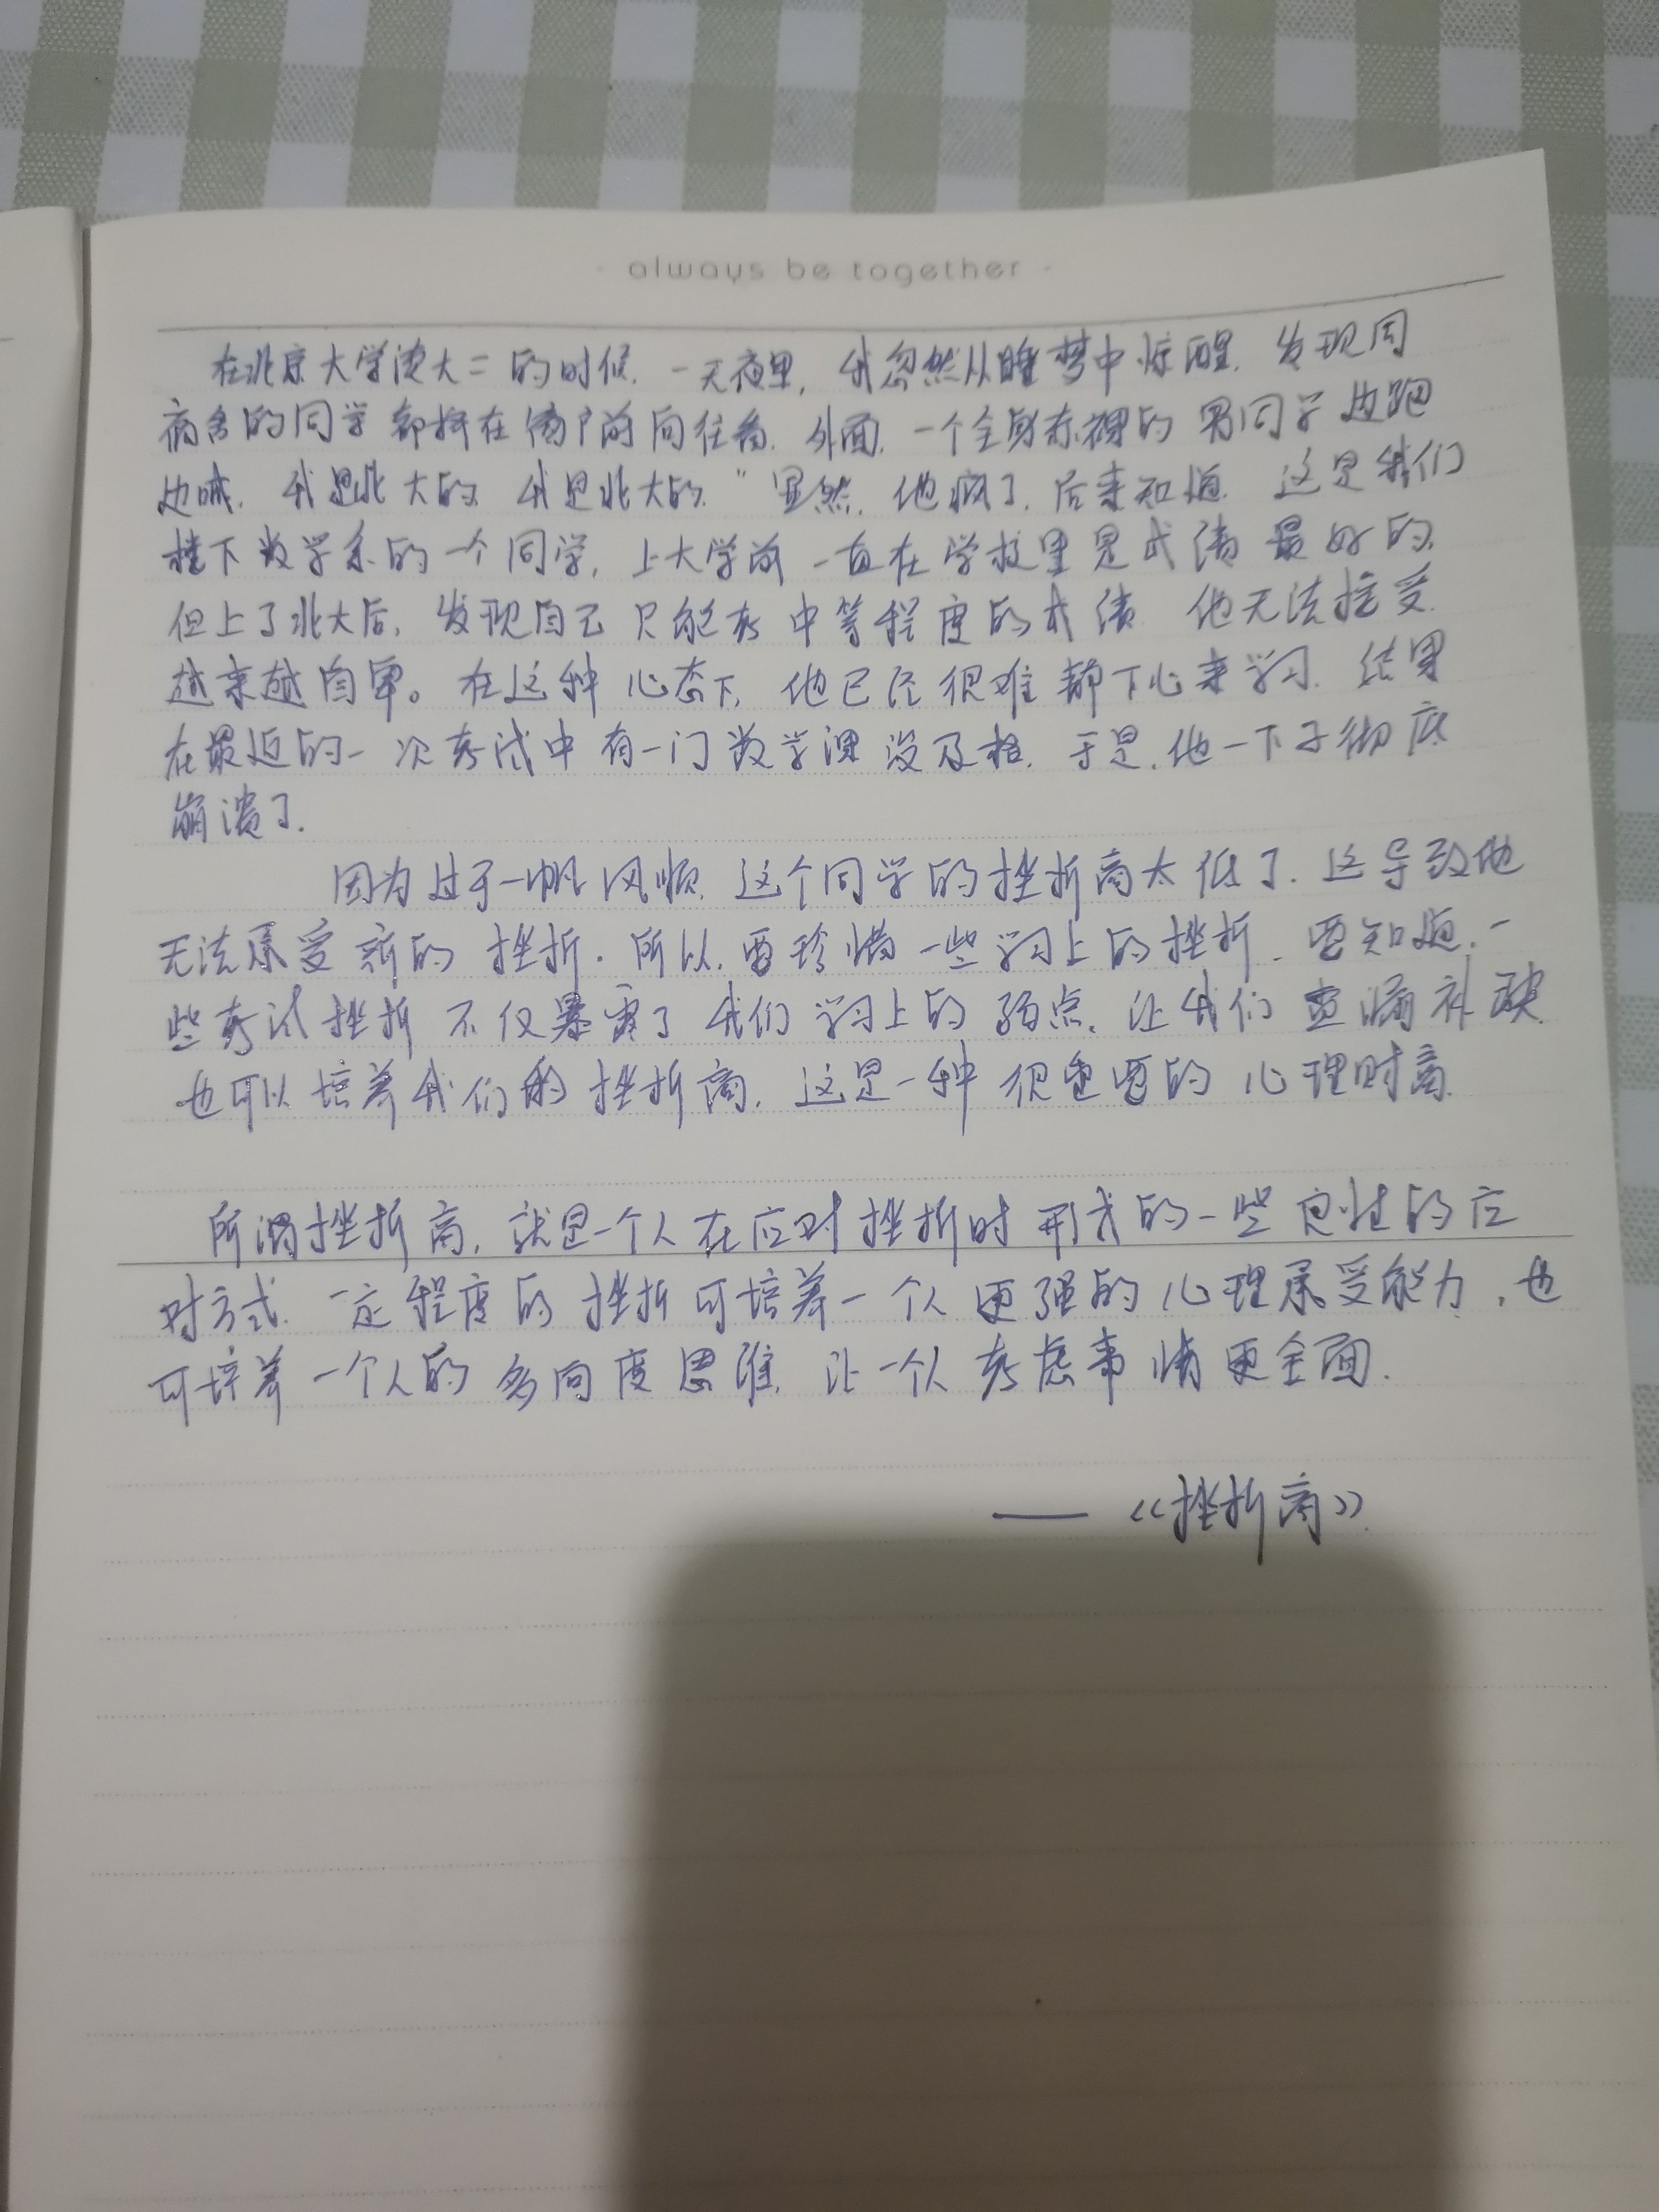 · always be together ·
在北京大学读大二的时候.一天夜里,我忽然从睡梦中惊醒.发现同
宿舍的同学都挤在窗户前向往看.外面,一个全身赤裸的男同学边跑
边喊.我是北大的 我是北大的."显然.他疯了.后来知道 这是我们
楼下数学系的一个同学,上大学前一直在学校里是成绩最好的.
但上了北大后,发现自己只能考中等程度的成绩 他无法接受.
越来越自卑。在这种心态下,他已经很难静下心来学习.结果
在最近的一次考试中有一门数学课没及格.于是.他一下子彻底
崩溃了.
因为过于一帆风顺.这个同学的挫折商太低了.这导致他
无法承受新的挫折.所以.要珍惜一些学习上的挫折.要知道.一
些考试挫折不仅暴露了我们学习上的弱点.让我们查漏补缺
也可以培养我们的挫折商.这是一种很重要的心理财富.
所谓挫折商,就是一个人在应对挫折时形成的一些良性的应
对方式.一定程度的挫折可培养一个人更强的心理承受能力,也
可培养一个人的多向度思维.让一个人考虑事情更全面.
——《挫折商》